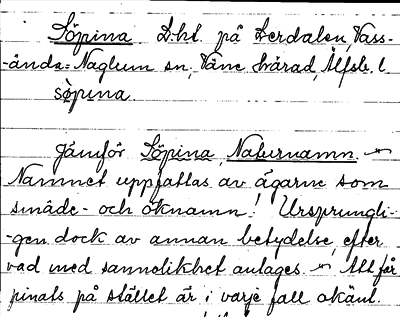 Söpina D:ht. på Lerdalen, Vass-
-ända-Naglum sn, Väne härad, Älfsb. l
sòpına.
Jämför Söpina, Naturnamn. ~
Namnet uppfattas av ägarne som
smäde- och öknamn! Ursprungli-
-gen dock av annan betydelse, efter
vad med sannolikhet antages. ~ Att får
pinats på stället är i varje fall okänt.